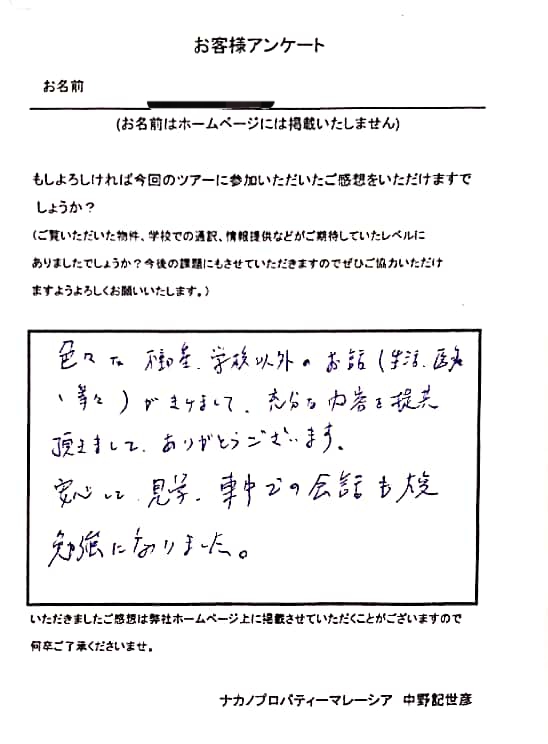 お客様アンケート
お名前
(お名前はホームページには掲載いたしません)
もしよろしければ今回のツアーに参加いただいたご感想をいただけますで
しょうか？
(ご覧いただいた物件、学校での通訳、情報提供などがご期待していたレベルに
ありましたでしょうか？今後の課題にもさせていただきますのでぜひご協力いただけ
ますようよろしくお願いいたします。)
色々な不動産、学校以外のお話(生活、医者
、等々)がきけまして、充分な内容を提供
頂きまして、ありがとうございます。
安心して、見学、車中での会話も大変
勉強になりました。
いただきましたご感想は弊社ホームページ上に掲載させていただくことがございますので
何卒ご了承くださいませ。
ナカノプロパティーマレーシア 中野記世彦